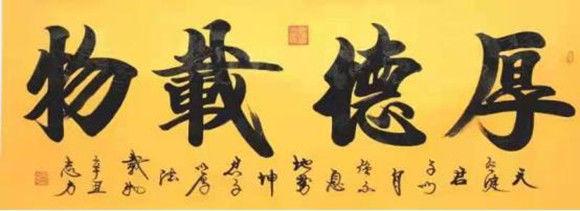 厚德載物
天行健君子以自强不息地势坤君子以厚德載物
辛丑
志力